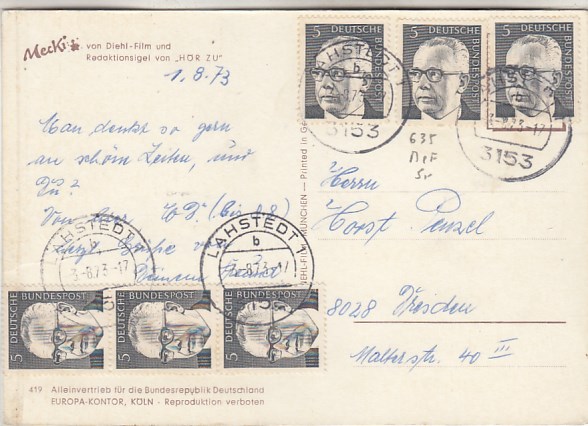 Mecki von Diehl-Film und
Redaktionsigel von „HÖR ZU"
1.8.73
Man denkt so gern
an schöne Zeiten, und
Du?
Von hier (bis 8.8)
5 5 5
DEUTSCHE BUNDESPOST
DEUTSCHE BUNDESPOST
DEUTSCHE BUNDESPOST
LAHSTEDT 1
b
3153
b
-8.73-17
3153
635
MeF
Herrn
Horst Penzel
8028 Dresden
Malterstr. 40 III
LAHSTEDT
b
3-8.73-17
LAHSTEDT 1
b
-8.73-17
5 DEUTSCHE BUNDESPOST
5 DEUTSCHE BUNDESPOST
5 DEUTSCHE BUNDESPOST
DIEHL-FILM MÜNCHEN — Printed in
419 Alleinvertrieb für die Bundesrepublik Deutschland
EUROPA-KONTOR, KÖLN - Reproduktion verboten